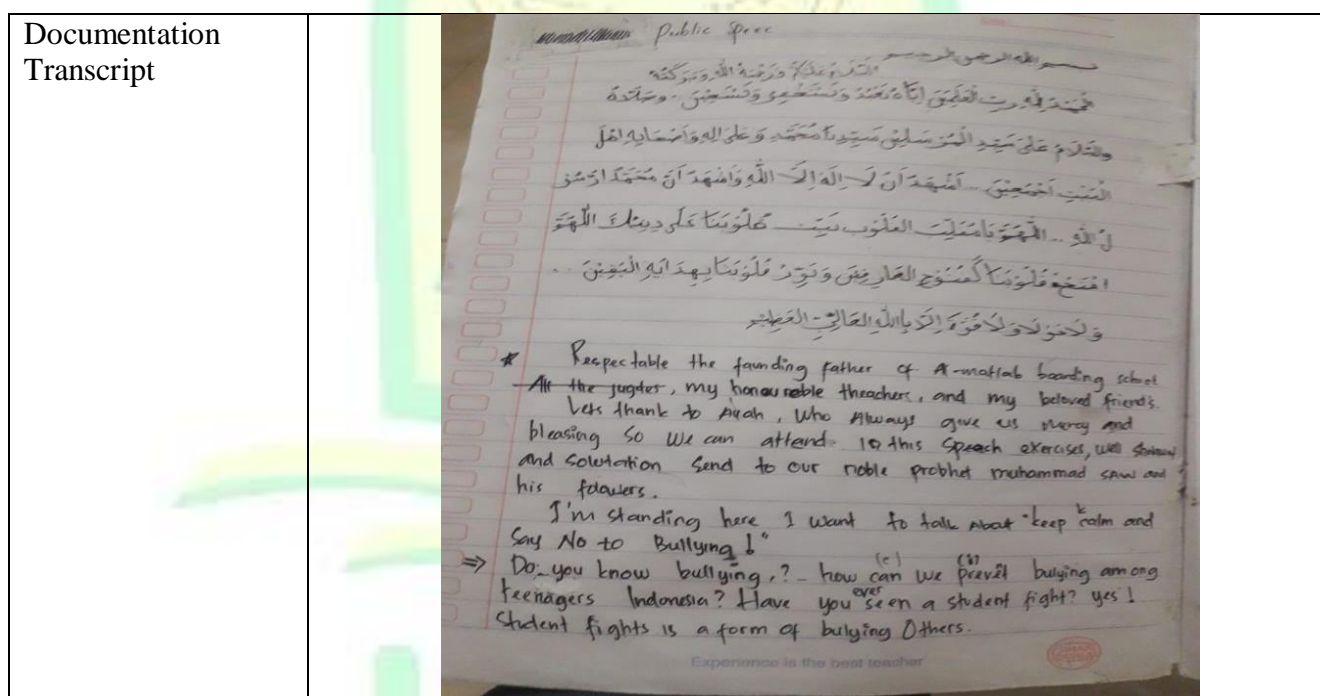 Documentation
Transcript
Public Speec
بسم الله الرحمن الرحيم
السلام عليكم ورحمة الله وبركته
والسلام على سيد المرسلين سيدنا محمد وعلى اله واصحابه اهل
اجمعين .. اشهد ان لا اله الا الله واشهد ان محمدا رسو
ل الله .. اللهم يا مقلب القلوب ثبت قلوبنا على دينك اللهم
افتح قلوبنا كفتوح العارفين ونور قلوبنا بهداية اليقين ..
ولا حول ولا قوة الا باالله العالي العظيم
* Respectable the founding father of A-matlab boarding school
All the jugdes, my honoureble theachers, and my beloved friends.
Lets thank to Allah, Who Always give us mercy and
bleasing so we can attend to this speech exercises, well
and Solutation Send to our noble probhet muhammad SAW and
his folowers.
I'm standing here I want to talk About "keep calm and
Say No to Bullying!"
⇒ Do you know bullying,? how can we prevet bulying among
teenagers Indonesia? Have you ever seen a student fight? yes!
Student fights is a form of bulying Others.
Experience is the best teacher